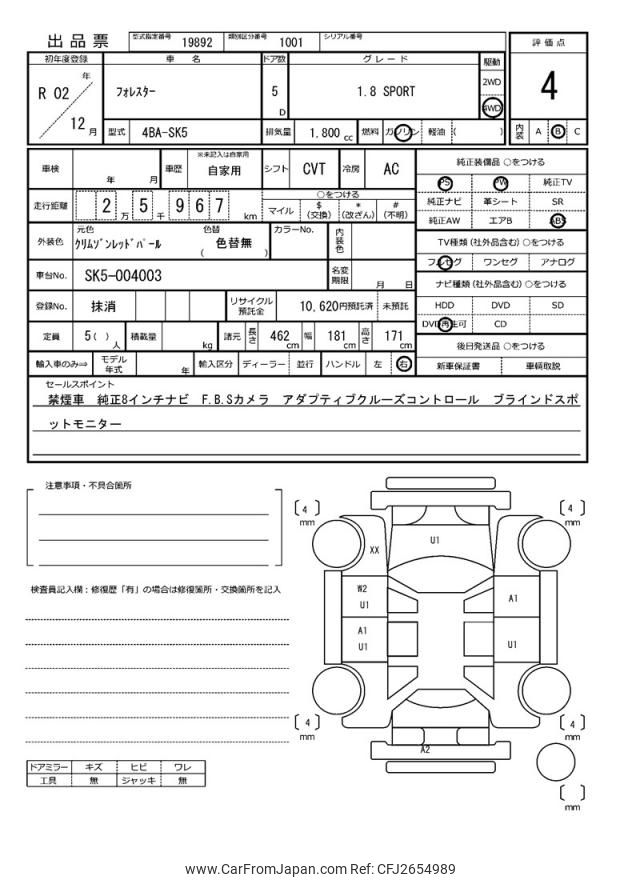 出品票
型式指定番号 19892 類別区分番号 1001 シリアル番号
初年度登録 車 名 ドア数 グレード 駆動 評価点
R 02 年 12 月
フォレスター
5 D
1.8 SPORT
2WD
4WD
4
型式 4BA-SK5 排気量 1,800 cc 燃料 ガソリン 軽油 ( )
内装 A B C
車検 年 月 車歴 ※未記入は自家用 自家用 シフト CVT 冷房 AC
走行距離 2 万 5 千 9 6 7 km
○をつける
マイル $ (交換) * (改ざん) # (不明)
外装色 元色 クリムゾンレッドパール 色替 ( 色替無 ) カラーNo. 内装色
車台No. SK5-004003 名変期限 月 日
登録No. 抹消 リサイクル預託金 10,620円預託済 未預託
定員 5( ) 人 積載量 kg 諸元 長さ 462 cm 幅 181 cm 高さ 171 cm
輸入車のみ⇒ モデル年式 年 輸入区分 ディーラー 並行 ハンドル 左 右
純正装備品 ○をつける
PS PW 純正TV
純正ナビ 革シート SR
純正AW エアB ABS
TV種類 (社外品含む) ○をつける
フルセグ ワンセグ アナログ
ナビ種類 (社外品含む) ○をつける
HDD DVD SD
DVD再生可 CD
後日発送品 ○をつける
新車保証書 車輌取説
セールスポイント
禁煙車 純正8インチナビ F.B.Sカメラ アダプティブクルーズコントロール ブラインドスポ
ットモニター
注意事項・不具合箇所
検査員記入欄：修復歴「有」の場合は修復箇所・交換箇所を記入
ドアミラー キズ ヒビ ワレ
工具 無 ジャッキ 無
4 mm
4 mm
U1
XX
W2
U1
A1
A1
U1
U1
4 mm
4 mm
A2
mm
www.CarFromJapan.com Ref: CFJ2654989